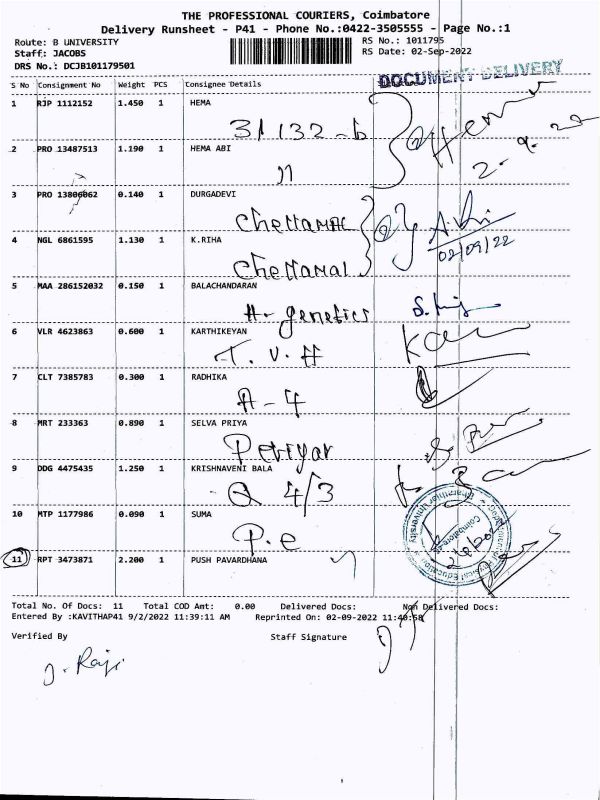 THE PROFESSIONAL COURIERS, Coimbatore
Delivery Runsheet - P41 - Phone No.:0422-3505555 - Page No.:1
Route: B UNIVERSITY
Staff: JACOBS
DRS No.: DCJB101179501
RS No.: 1011795
RS Date: 02-Sep-2022
DOCUMENT DELIVERY
S No Consignment No Weight PCS Consignee Details
1 RJP 1112152 1.450 1 HEMA
31132-b
Hema
2 PRO 13487513 1.190 1 HEMA ABI
11
2-9-22
3 PRO 13806062 0.140 1 DURGADEVI
Chellamal
02/09/22
4 NGL 6861595 1.130 1 K.RIHA
Chellamal
5 MAA 286152032 0.150 1 BALACHANDARAN
H-genetics
6 VLR 4623863 0.600 1 KARTHIKEYAN
T.V.H
7 CLT 7385783 0.300 1 RADHIKA
A-4
8 MRT 233363 0.890 1 SELVA PRIYA
Periyar
9 DDG 4475435 1.250 1 KRISHNAVENI BALA
Q 4/3
10 MTP 1177986 0.090 1 SUMA
P.e
Bharathiar University
Coimbatore
11 RPT 3473871 2.200 1 PUSH PAVARDHANA
11
Total No. Of Docs: 11 Total COD Amt: 0.00 Delivered Docs: Non Delivered Docs:
Entered By :KAVITHAP41 9/2/2022 11:39:11 AM Reprinted On: 02-09-2022 11:40:58
Verified By Staff Signature
J. Raji